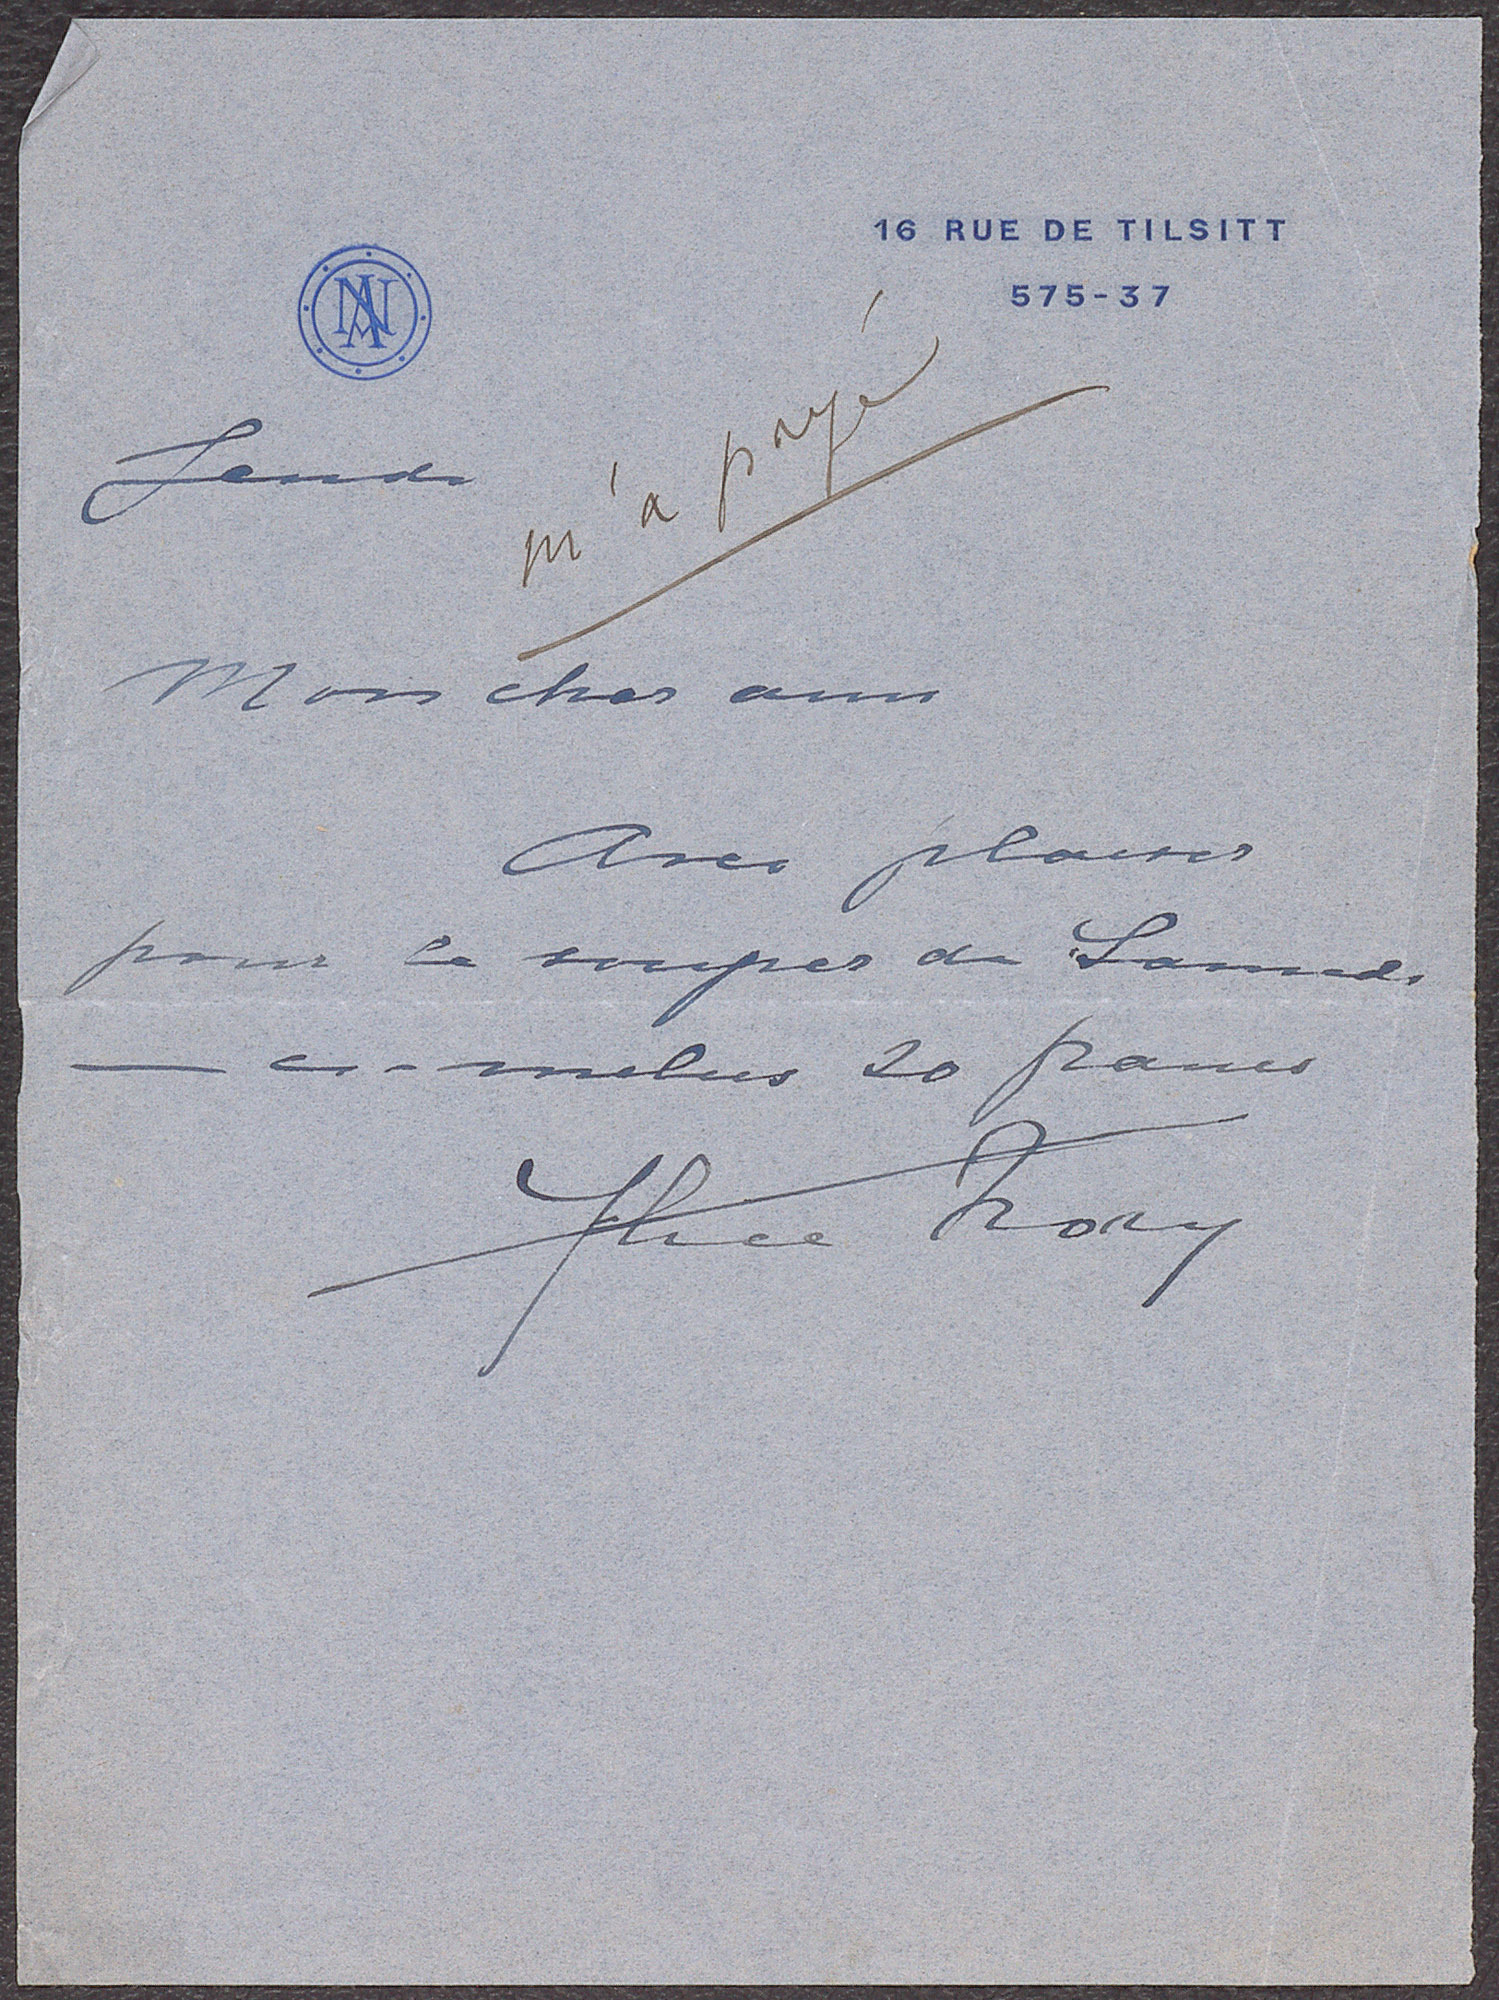 16 RUE DE TILSITT
575-37
NA
Jeudi
m'a payé
Mon cher ami
Avec plaisir
pour le souper de Samedi
— ci-inclus 20 francs
Alice Nory